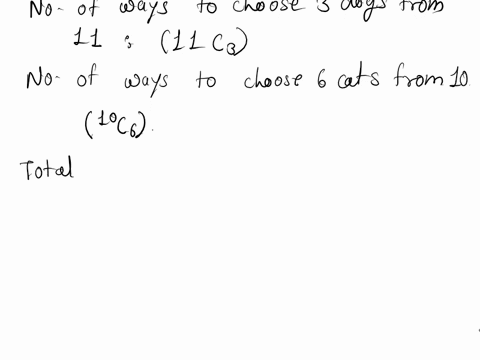 No- of ways to choose 3 dogs from
11 : (11 C3)
No- of ways to choose 6 cats from 10
(¹⁰C₆).
Total